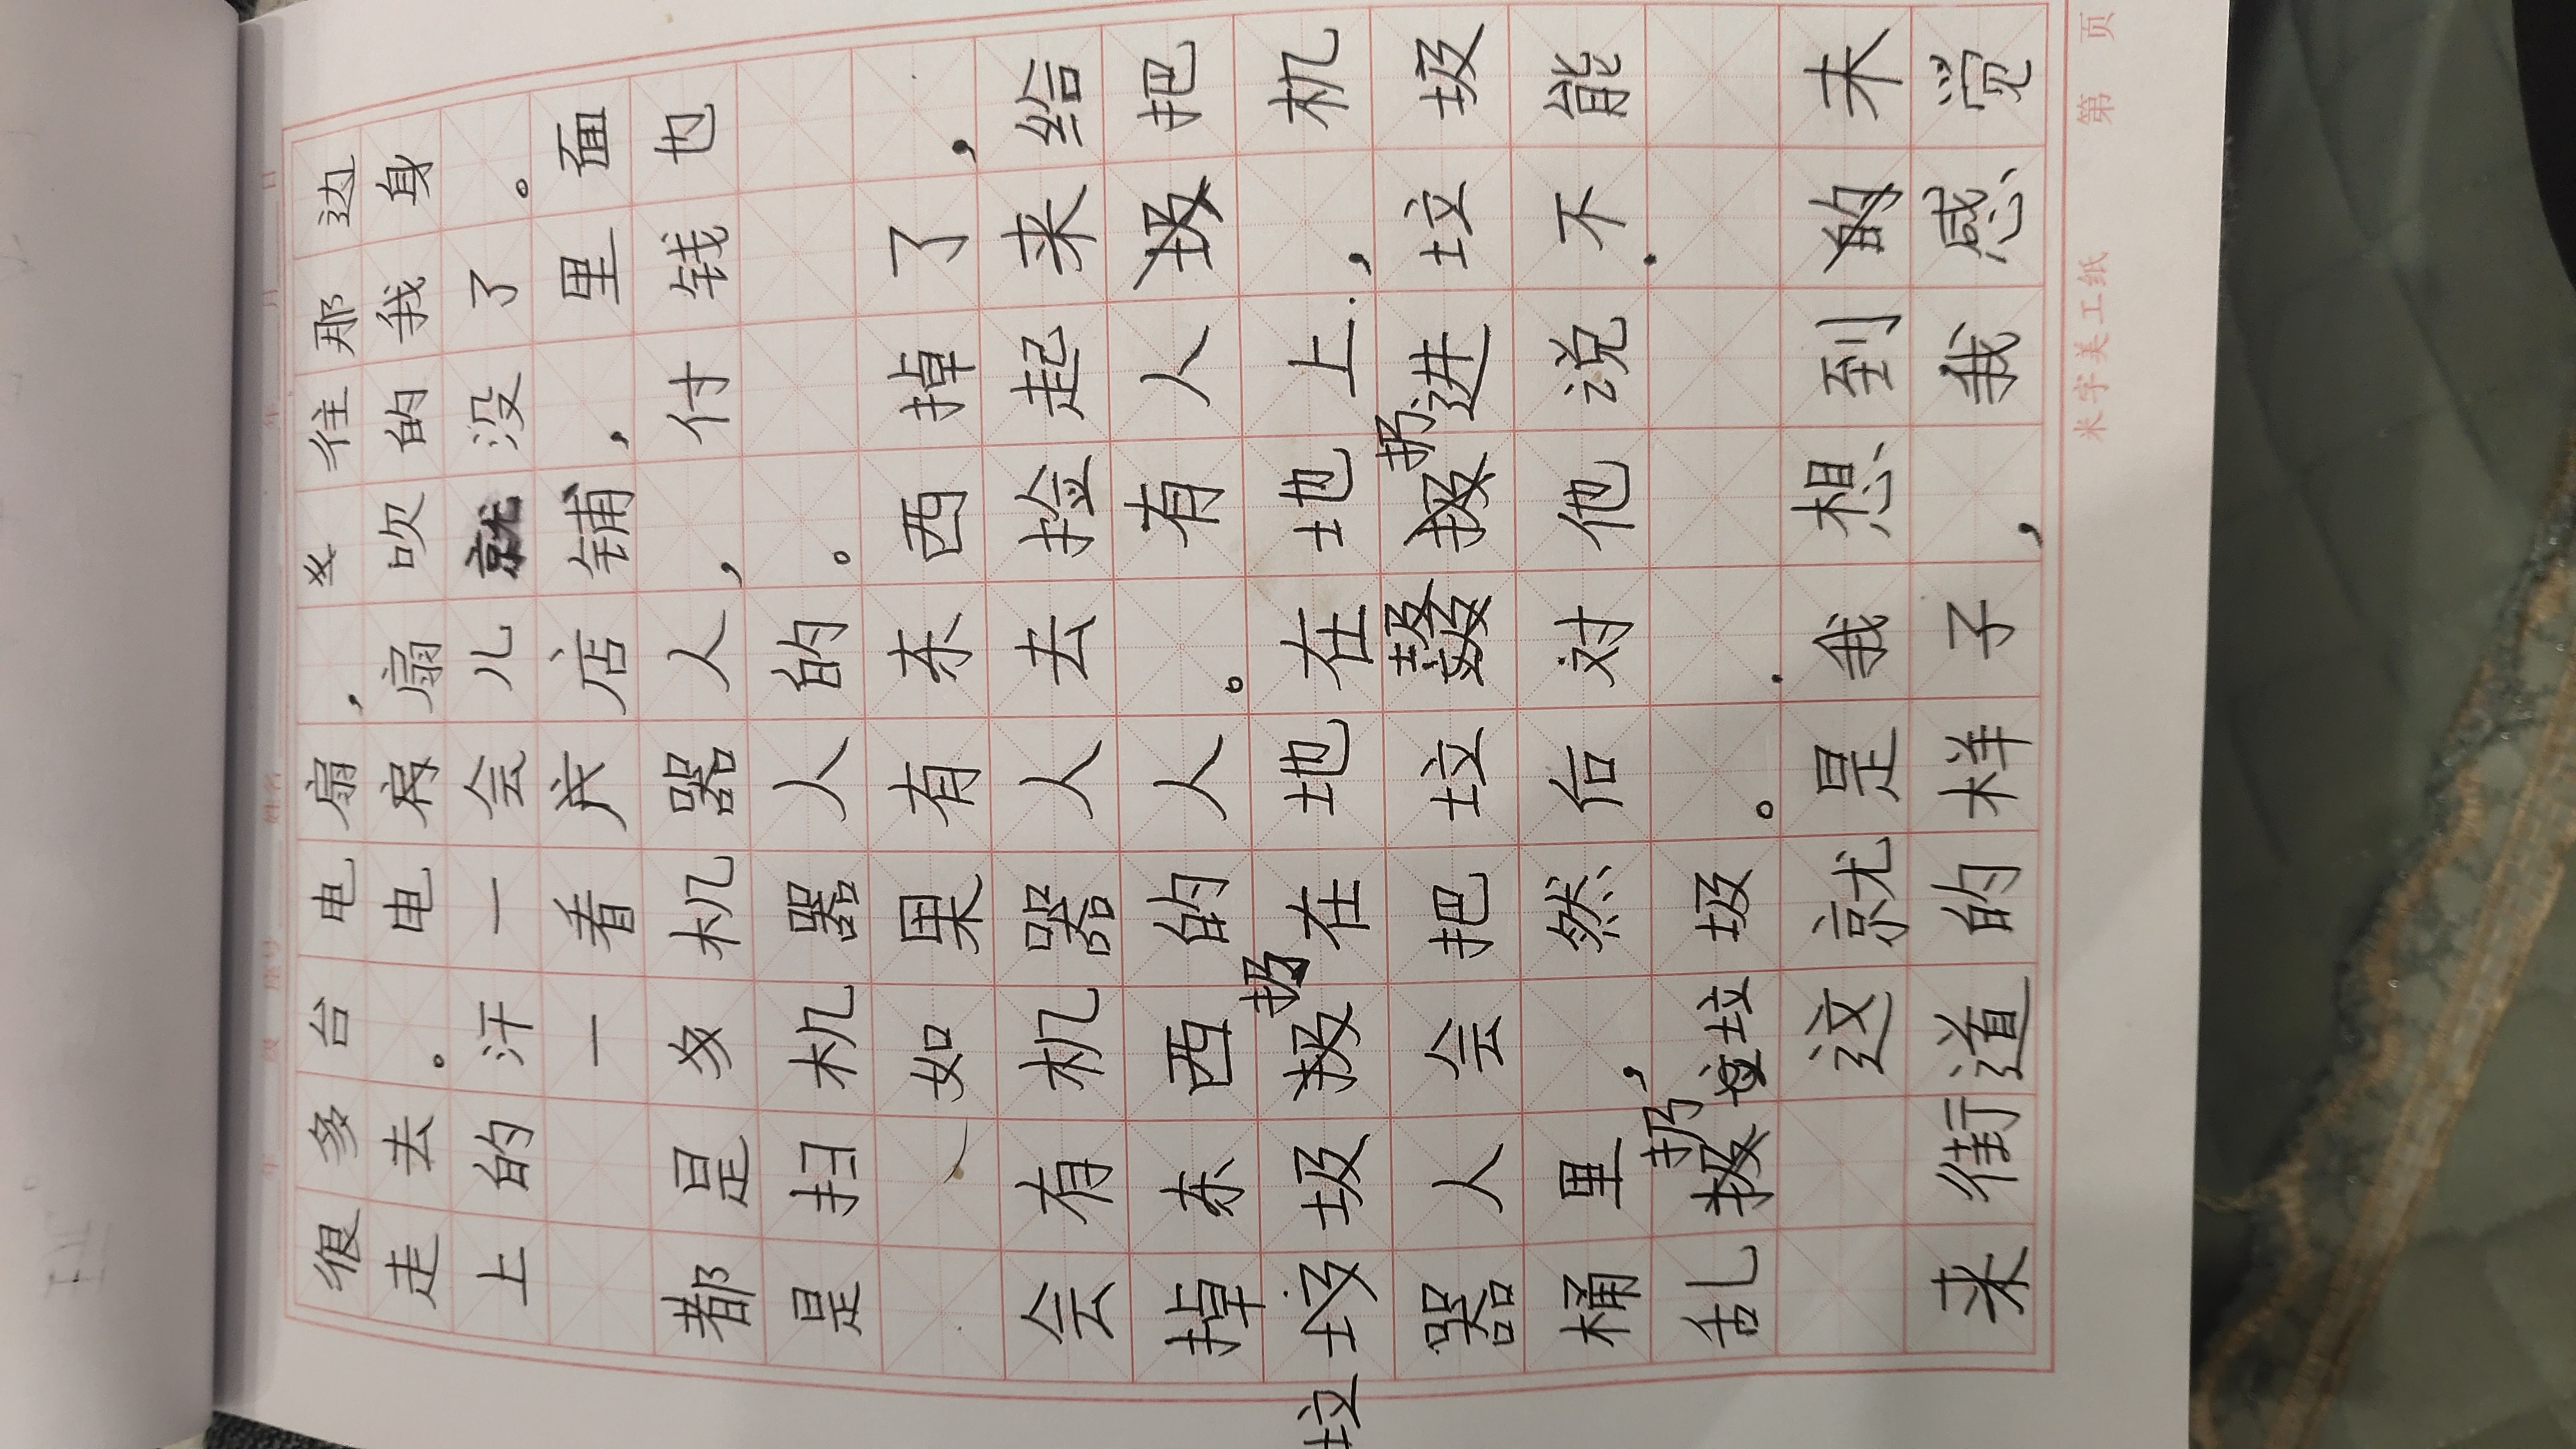 很多台电扇，往那边
走去。电扇吹的我身
上的汗一会儿就没了。
一看店铺，里面
都是多机器人，付钱也
是扫机器人的。
如果有东西掉了，
会有机器人去捡起来给
掉东西的人。有人把
垃圾扔在地在地上，机
器人会把垃圾扔进垃圾
桶里，然后对他说不能
乱扔垃圾。
这就是我想到的未
来街道的样子，我感觉
米字美工纸 第 页